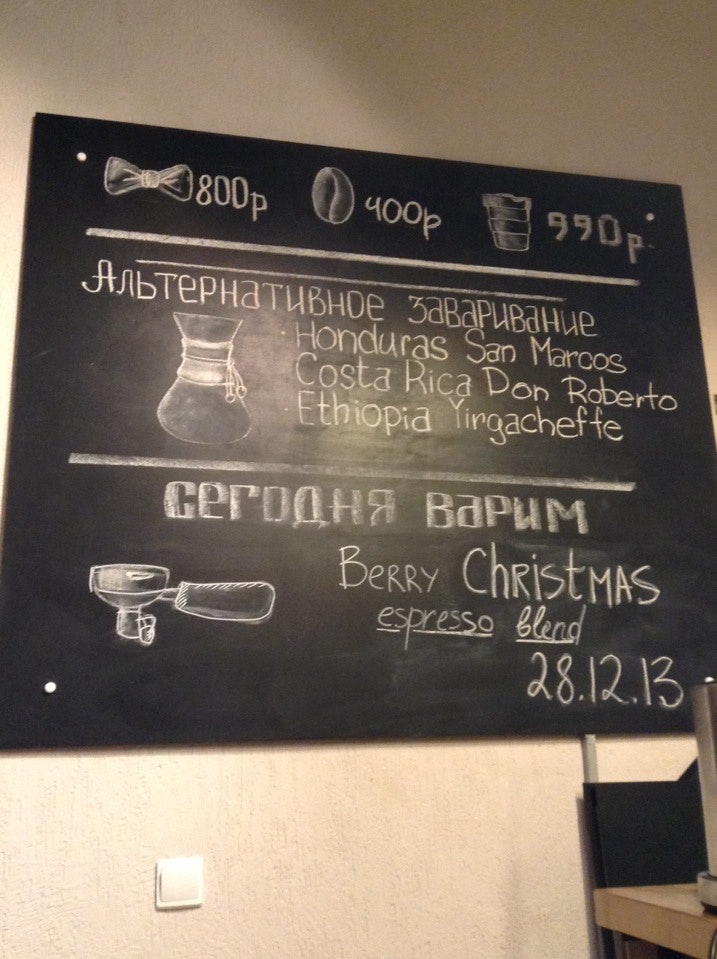 800р 400р 990р.
Альтернативное заваривание
Honduras San Marcos
Costa Rica Don Roberto
Ethiopia Yirgacheffe
сегодня варим
Berry Christmas
espresso blend
28.12.13